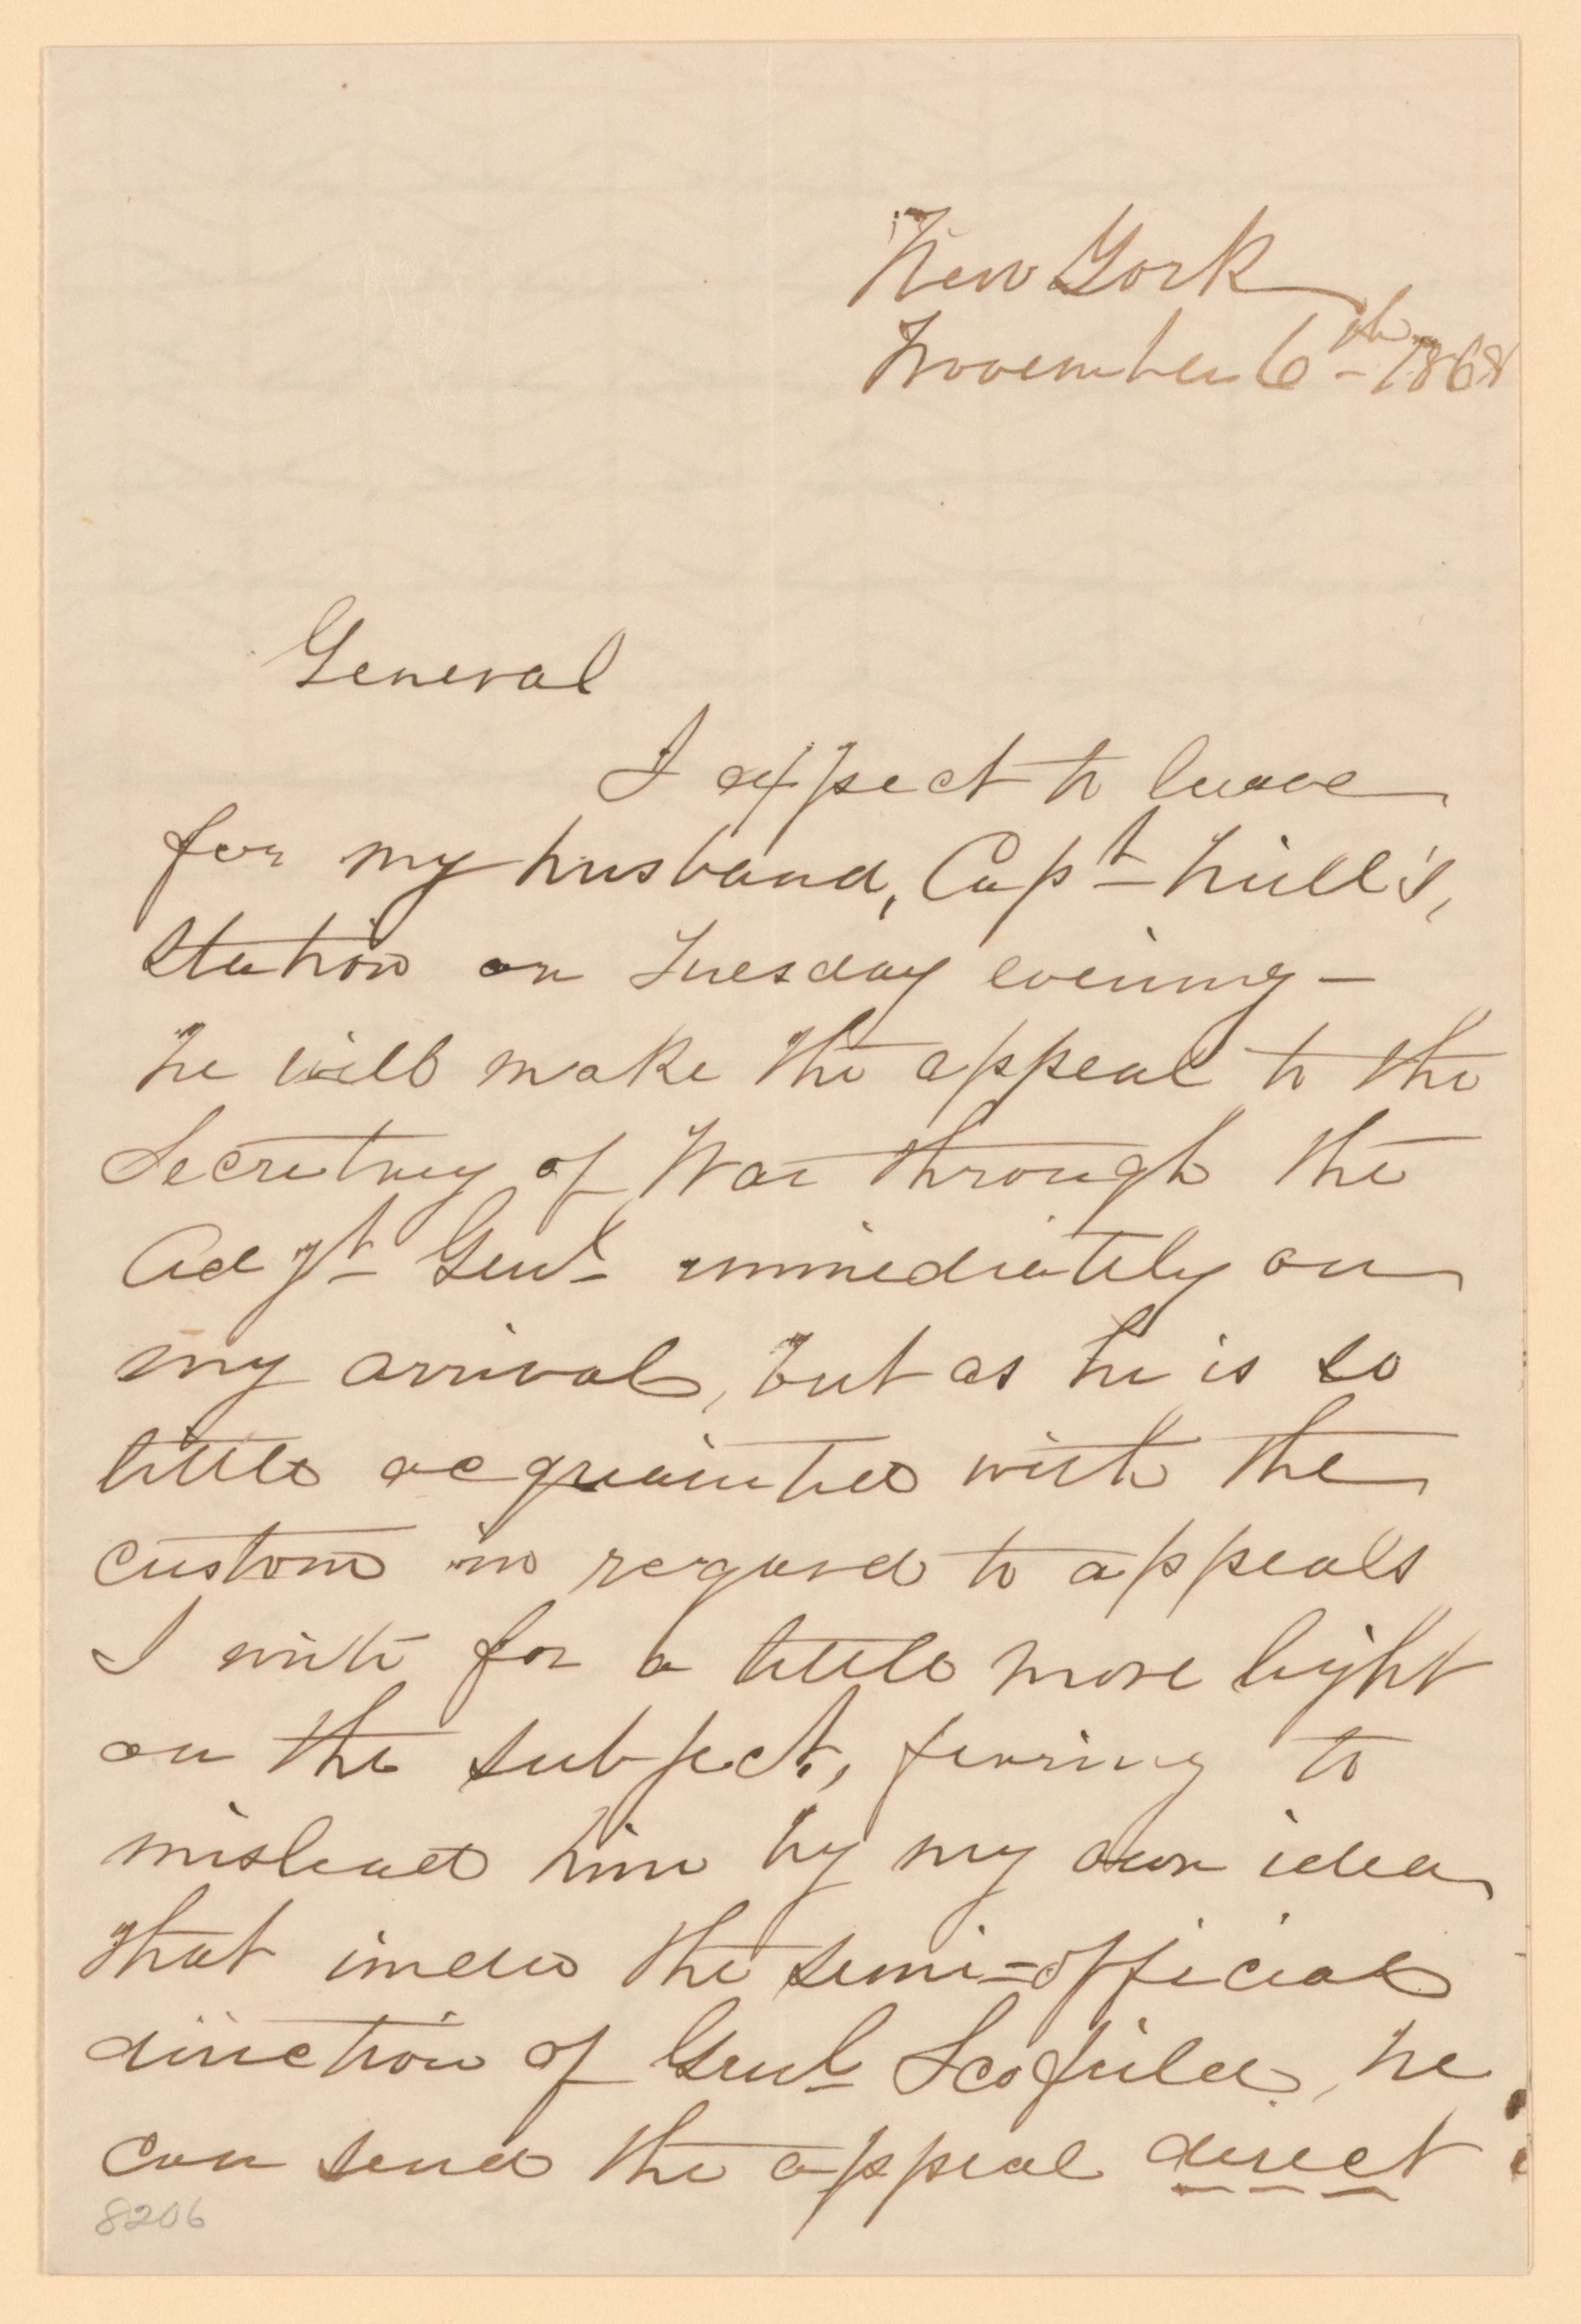 New York
November 6th - 1868
General
I expect to leave
for my husband, Capt
station on Tuesday evening -
he will make the appeal to the
Secretary of War through the
Adjt Genl immediately on
my arrival, but as he is so
little acquainted with the
custom in regard to appeals
I write for a little more light
on the subject, fearing to
mislead him by my own idea
that under the semi-official
direction of Genl Scofield, he
can send the appeal direct
8206